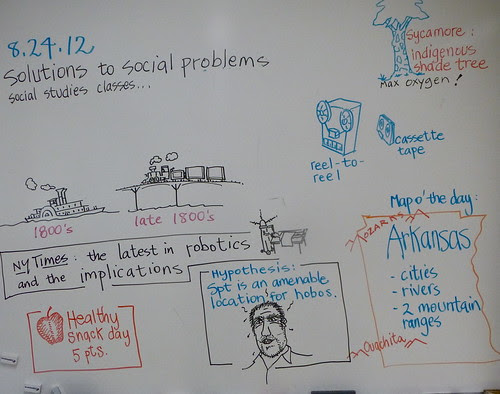 8.24.12
Solutions to social problems
social studies classes...
Sycamore:
indigenous
shade tree
*Max oxygen!
reel-to-
reel
cassette
tape
1800's
late 1800's
NY Times: the latest in robotics
and the implications
Map o' the day:
OZARKS
Arkansas
- cities
- rivers
- 2 mountain
ranges
Ouachita
Hypothesis:
Spt is an amenable
location for hobos.
Healthy
Snack day
5 pts.